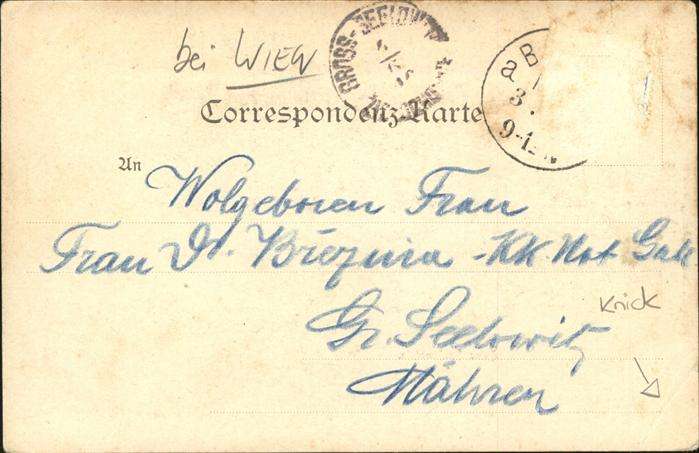 bei WIEN
GROSS-SEELOWITZ
Correspondenz-Karte
9-12
An
Wolgeboren Frau
Frau Dr. Březina - KK Not Gat
Gr. Seelowitz
Mähren
Knick